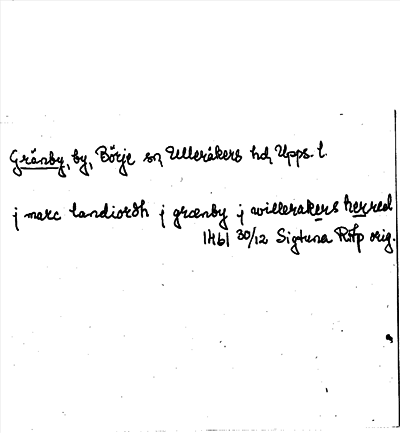 Gränby, by, Börje sn, Ulleråkers hd, Upps. l.
j marc landiordh j grænby j willerakers herred
1461 30/12 Sigtuna RAp orig.